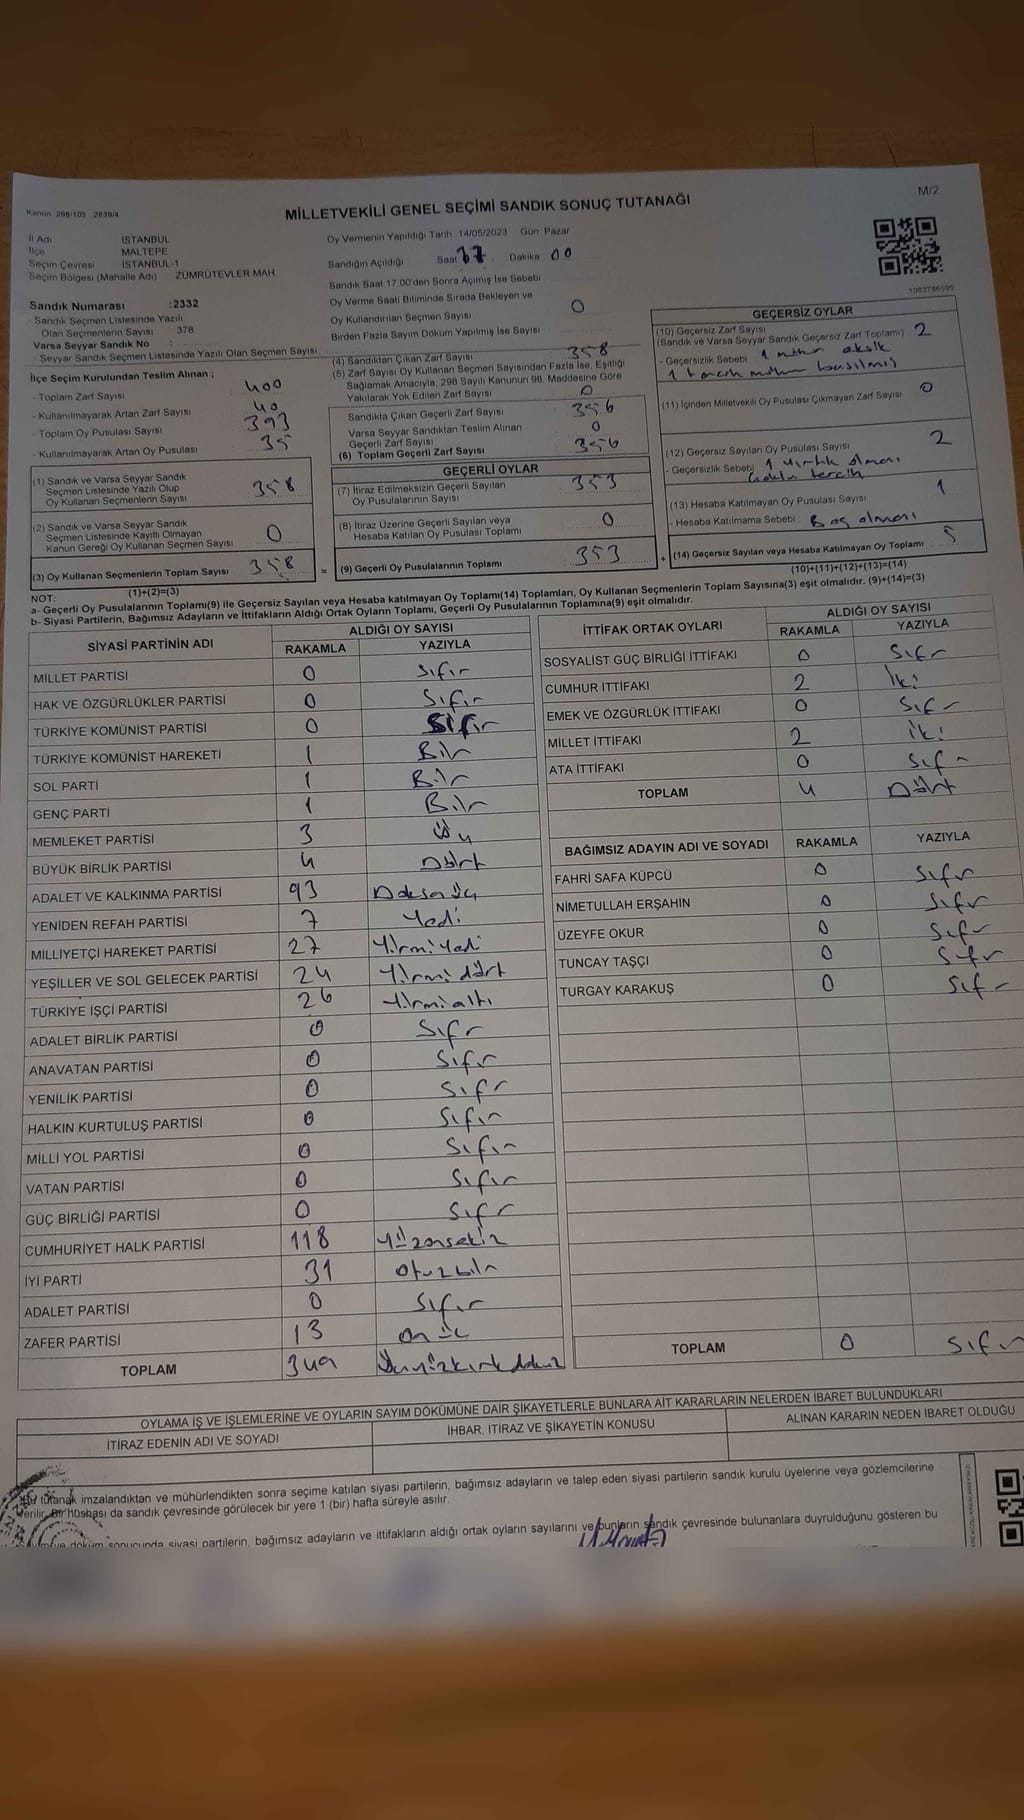 M/2
Kanun: 298/105 , 2839/4
MİLLETVEKİLİ GENEL SEÇİMİ SANDIK SONUÇ TUTANAĞI
İl Adı İSTANBUL
İlçe MALTEPE
Seçim Çevresi İSTANBUL-1
Seçim Bölgesi (Mahalle Adı) ZÜMRÜTEVLER MAH.
Sandık Numarası :2332
- Sandık Seçmen Listesinde Yazılı
Olan Seçmenlerin Sayısı 378
Varsa Seyyar Sandık No :
- Seyyar Sandık Seçmen Listesinde Yazılı Olan Seçmen Sayısı
İlçe Seçim Kurulundan Teslim Alınan :
- Toplam Zarf Sayısı 400
- Kullanılmayarak Artan Zarf Sayısı 40
- Toplam Oy Pusulası Sayısı 393
- Kullanılmayarak Artan Oy Pusulası 35
(1) Sandık ve Varsa Seyyar Sandık
Seçmen Listesinde Yazılı Olup
Oy Kullanan Seçmenlerin Sayısı 358
(2) Sandık ve Varsa Seyyar Sandık
Seçmen Listesinde Kayıtlı Olmayan
Kanun Gereği Oy Kullanan Seçmen Sayısı 0
(3) Oy Kullanan Seçmenlerin Toplam Sayısı 358
(1)+(2)=(3)
Oy Vermenin Yapıldığı Tarih :14/05/2023 Gün: Pazar
Sandığın Açıldığı Saat 17 . Dakika 00
Sandık Saat 17.00'den Sonra Açılmış İse Sebebi
Oy Verme Saati Bitiminde Sırada Bekleyen ve
Oy Kullandırılan Seçmen Sayısı 0
Birden Fazla Sayım Döküm Yapılmış İse Sayısı
(4) Sandıktan Çıkan Zarf Sayısı 358
(5) Zarf Sayısı Oy Kullanan Seçmen Sayısından Fazla İse, Eşitliği
Sağlamak Amacıyla; 298 Sayılı Kanunun 98. Maddesine Göre
Yakılarak Yok Edilen Zarf Sayısı 0
Sandıkta Çıkan Geçerli Zarf Sayısı 356
Varsa Seyyar Sandıktan Teslim Alınan
Geçerli Zarf Sayısı 0
(6) Toplam Geçerli Zarf Sayısı 356
GEÇERLİ OYLAR
(7) İtiraz Edilmeksizin Geçerli Sayılan
Oy Pusulalarının Sayısı 353
(8) İtiraz Üzerine Geçerli Sayılan veya
Hesaba Katılan Oy Pusulası Toplamı 0
= (9) Geçerli Oy Pusulalarının Toplamı 353 +
1083766599
GEÇERSİZ OYLAR
(10) Geçersiz Zarf Sayısı
(Sandık ve Varsa Seyyar Sandık Geçersiz Zarf Toplamı) 2
- Geçersizlik Sebebi 1 mühür eksik
1 tercih mührü basılmış
(11) İçinden Milletvekili Oy Pusulası Çıkmayan Zarf Sayısı 0
(12) Geçersiz Sayılan Oy Pusulası Sayısı 2
- Geçersizlik Sebebi 1 yırtık olması
tercih
(13) Hesaba Katılmayan Oy Pusulası Sayısı 1
- Hesaba Katılmama Sebebi Boş olması
(14) Geçersiz Sayılan veya Hesaba Katılmayan Oy Toplamı 5
(10)+(11)+(12)+(13)=(14)
NOT:
a- Geçerli Oy Pusulalarının Toplamı(9) ile Geçersiz Sayılan veya Hesaba katılmayan Oy Toplamı(14) Toplamları, Oy Kullanan Seçmenlerin Toplam Sayısına(3) eşit olmalıdır. (9)+(14)=(3)
b- Siyasi Partilerin, Bağımsız Adayların ve İttifakların Aldığı Ortak Oyların Toplamı, Geçerli Oy Pusulalarının Toplamına(9) eşit olmalıdır.
SİYASİ PARTİNİN ADI ALDIĞI OY SAYISI
RAKAMLA YAZIYLA
MİLLET PARTİSİ 0 Sıfır
HAK VE ÖZGÜRLÜKLER PARTİSİ 0 Sıfır
TÜRKİYE KOMÜNİST PARTİSİ 0 Sıfır
TÜRKİYE KOMÜNİST HAREKETİ 1 Bir
SOL PARTİ 1 Bir
GENÇ PARTİ 1 Bir
MEMLEKET PARTİSİ 3 Üç
BÜYÜK BİRLİK PARTİSİ 4 Dört
ADALET VE KALKINMA PARTİSİ 93 Doksanüç
YENİDEN REFAH PARTİSİ 7 Yedi
MİLLİYETÇİ HAREKET PARTİSİ 27 Yirmiyedi
YEŞİLLER VE SOL GELECEK PARTİSİ 24 Yirmidört
TÜRKİYE İŞÇİ PARTİSİ 26 Yirmialtı
ADALET BİRLİK PARTİSİ 0 Sıfır
ANAVATAN PARTİSİ 0 Sıfır
YENİLİK PARTİSİ 0 Sıfır
HALKIN KURTULUŞ PARTİSİ 0 Sıfır
MİLLİ YOL PARTİSİ 0 Sıfır
VATAN PARTİSİ 0 Sıfır
GÜÇ BİRLİĞİ PARTİSİ 0 Sıfır
CUMHURİYET HALK PARTİSİ 118 Yüzonsekiz
İYİ PARTİ 31 Otuzbir
ADALET PARTİSİ 0 Sıfır
ZAFER PARTİSİ 13 Onüç
TOPLAM 349 Üçyüzkırkdokuz
İTTİFAK ORTAK OYLARI ALDIĞI OY SAYISI
RAKAMLA YAZIYLA
SOSYALİST GÜÇ BİRLİĞİ İTTİFAKI 0 Sıfır
CUMHUR İTTİFAKI 2 İki
EMEK VE ÖZGÜRLÜK İTTİFAKI 0 Sıfır
MİLLET İTTİFAKI 2 İki
ATA İTTİFAKI 0 Sıfır
TOPLAM 4 Dört
BAĞIMSIZ ADAYIN ADI VE SOYADI RAKAMLA YAZIYLA
FAHRİ SAFA KÜPCÜ 0 Sıfır
NİMETULLAH ERŞAHİN 0 Sıfır
ÜZEYFE OKUR 0 Sıfır
TUNCAY TAŞÇI 0 Sıfır
TURGAY KARAKUŞ 0 Sıfır
TOPLAM 0 Sıfır
OYLAMA İŞ VE İŞLEMLERİNE VE OYLARIN SAYIM DÖKÜMÜNE DAİR ŞİKAYETLERLE BUNLARA AİT KARARLARIN NELERDEN İBARET BULUNDUKLARI
İTİRAZ EDENİN ADI VE SOYADI İHBAR, İTİRAZ VE ŞİKAYETİN KONUSU ALINAN KARARIN NEDEN İBARET OLDUĞU
Bu tutanak imzalandıktan ve mühürlendikten sonra seçime katılan siyasi partilerin, bağımsız adayların ve talep eden siyasi partilerin sandık kurulu üyelerine veya gözlemcilerine
verilir. Bir nüshası da sandık çevresinde görülecek bir yere 1 (bir) hafta süreyle asılır.
ve döküm sonucunda siyasi partilerin, bağımsız adayların ve ittifakların aldığı ortak oyların sayılarını ve bunların sandık çevresinde bulunanlara duyrulduğunu gösteren bu